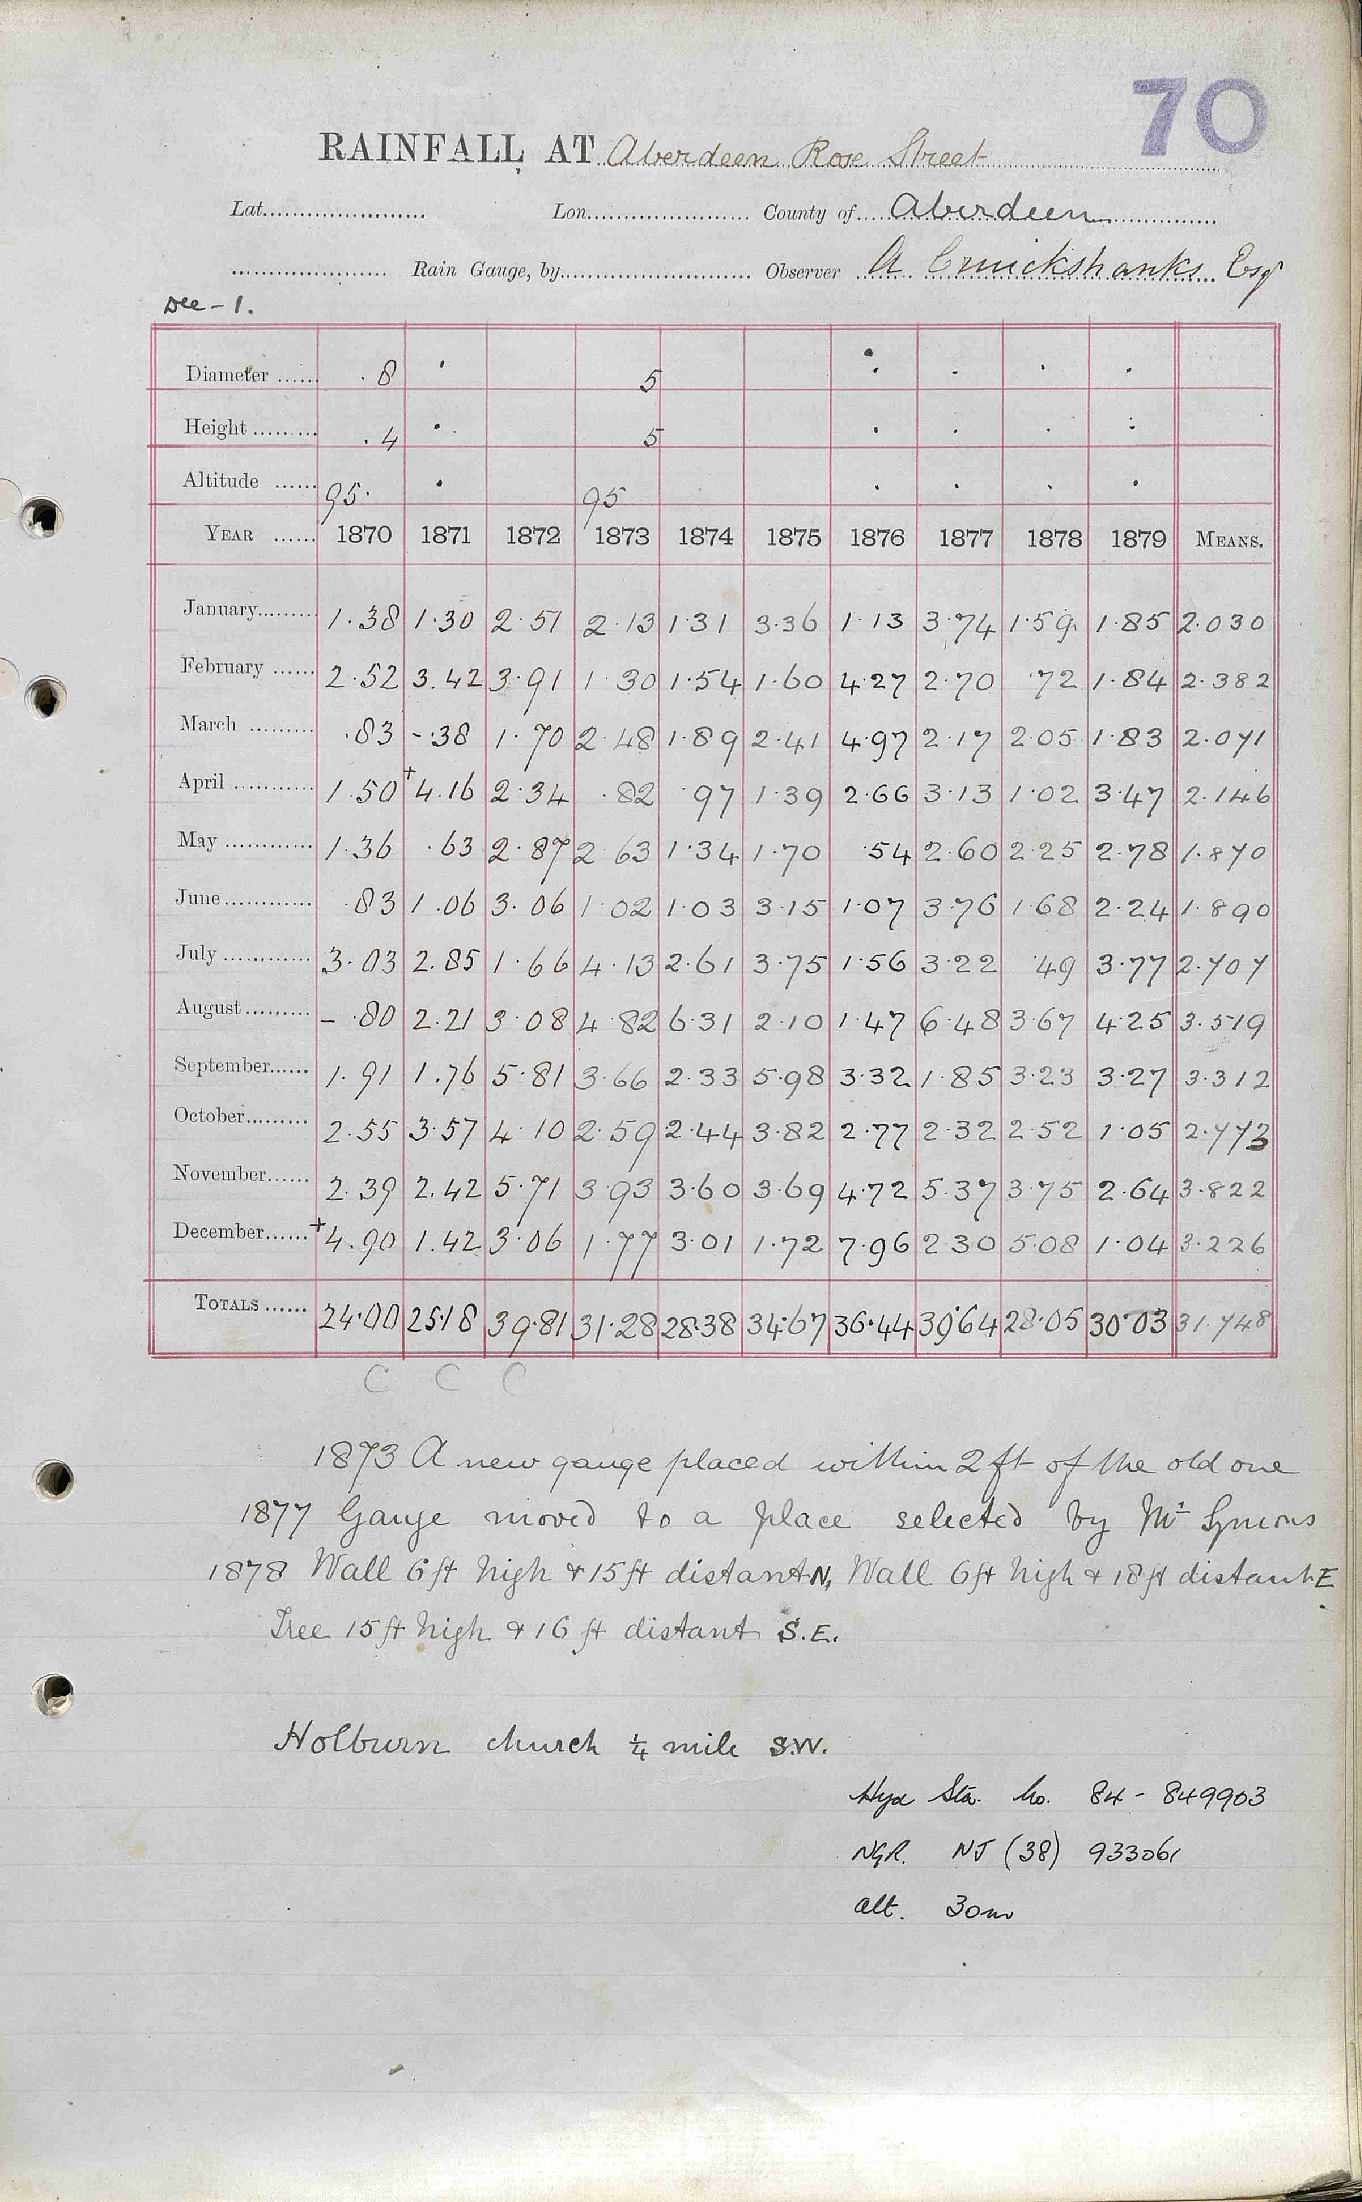 70
RAINFALL AT Aberdeen Rose Street
Lat...................... Lon...................... County of.... Aberdeen
..................... Rain Gauge, by.......................... Observer A Cruickshanks Esqr
Dee - 1.
Diameter ...... .8 · 5 · · · ·
Height ......... .4 · 5 · · · :
Altitude ...... 95. · 95 · · · ·
YEAR ...... 1870 1871 1872 1873 1874 1875 1876 1877 1878 1879 MEANS.
January......... 1.38 1.30 2.51 2.13 1.31 3.36 1.13 3.74 1.59 1.85 2.030
February ...... 2.52 3.42 3.91 1.30 1.54 1.60 4.27 2.70 .72 1.84 2.382
March ......... .83 -.38 1.70 2.48 1.89 2.41 4.97 2.17 2.05 1.83 2.071
April ............ 1.50 +4.16 2.34 .82 .97 1.39 2.66 3.13 1.02 3.47 2.146
May ............ 1.36 .63 2.87 2.63 1.34 1.70 .54 2.60 2.25 2.78 1.870
June ............ .83 1.06 3.06 1.02 1.03 3.15 1.07 3.76 1.68 2.24 1.890
July ............ 3.03 2.85 1.66 4.13 2.61 3.75 1.56 3.22 .49 3.77 2.707
August ......... - .80 2.21 3.08 4.82 6.31 2.10 1.47 6.48 3.67 4.25 3.519
September...... 1.91 1.76 5.81 3.66 2.33 5.98 3.32 1.85 3.23 3.27 3.312
October......... 2.55 3.57 4.10 2.59 2.44 3.82 2.77 2.32 2.52 1.05 2.773
November...... 2.39 2.42 5.71 3.93 3.60 3.69 4.72 5.37 3.75 2.64 3.822
December...... +4.90 1.42 3.06 1.77 3.01 1.72 7.96 2.30 5.08 1.04 3.226
TOTALS ...... 24.00 25.18 39.81 31.28 28.38 34.67 36.44 39.64 28.05 30.03 31.748
C C C
1873 A new gauge placed within 2 ft of the old one
1877 Gauge moved to a place selected by Mr Symons
1878 Wall 6 ft high & 15 ft distant N, Wall 6 ft high & 18 ft distant E
Tree 15 ft high & 16 ft distant S.E.
Holburn church ¼ mile S.W.
Hyd Sta. No. 84 - 849903
NGR. NJ (38) 933061
alt. 30m